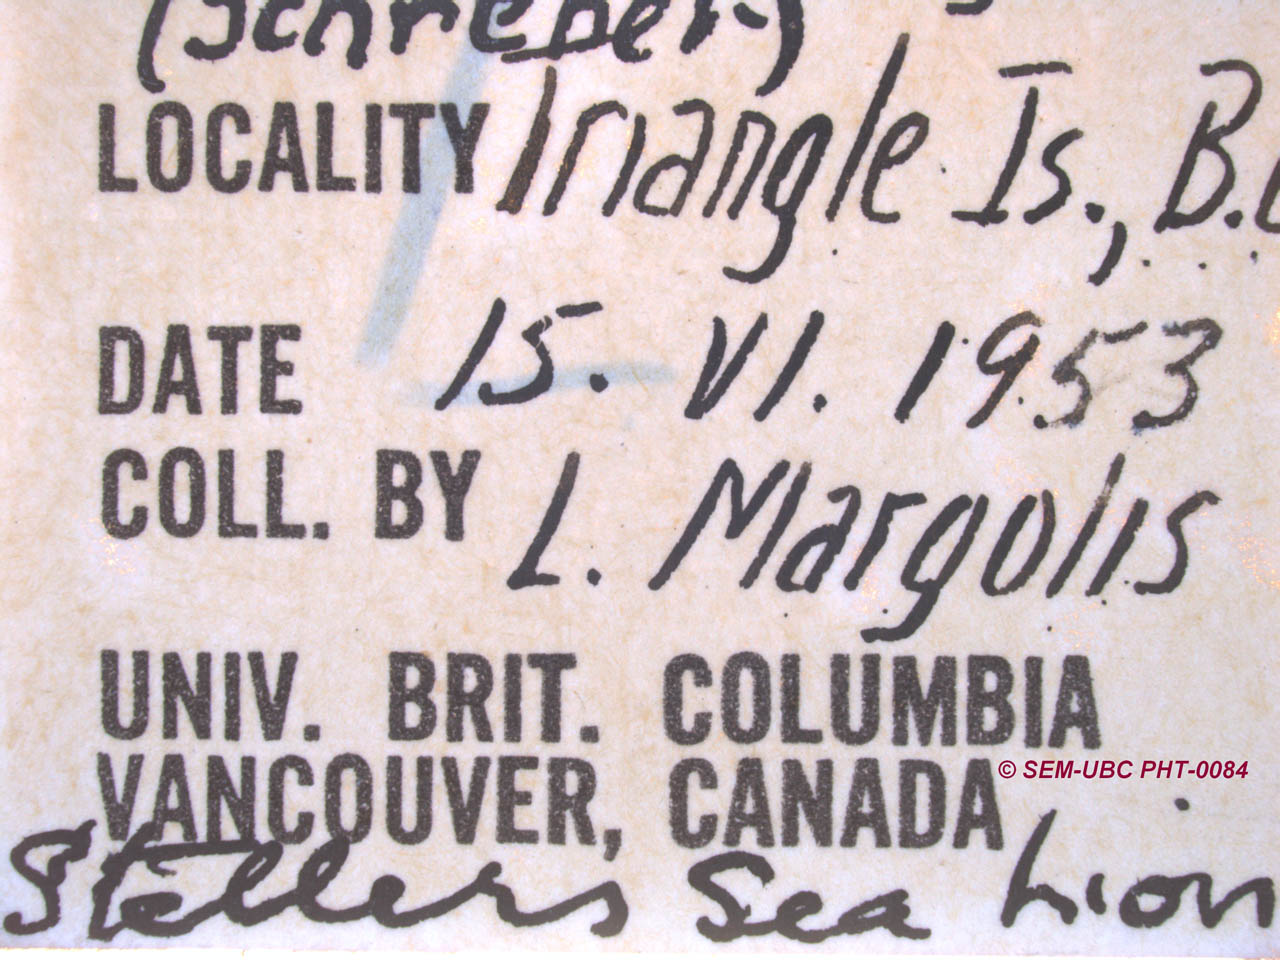 (Schreber)
LOCALITY Triangle Is., B.C
DATE 15. VI. 1953
COLL. BY L. Margolis
UNIV. BRIT. COLUMBIA
VANCOUVER, CANADA
© SEM-UBC PHT-0084
Stellers Sea Lion